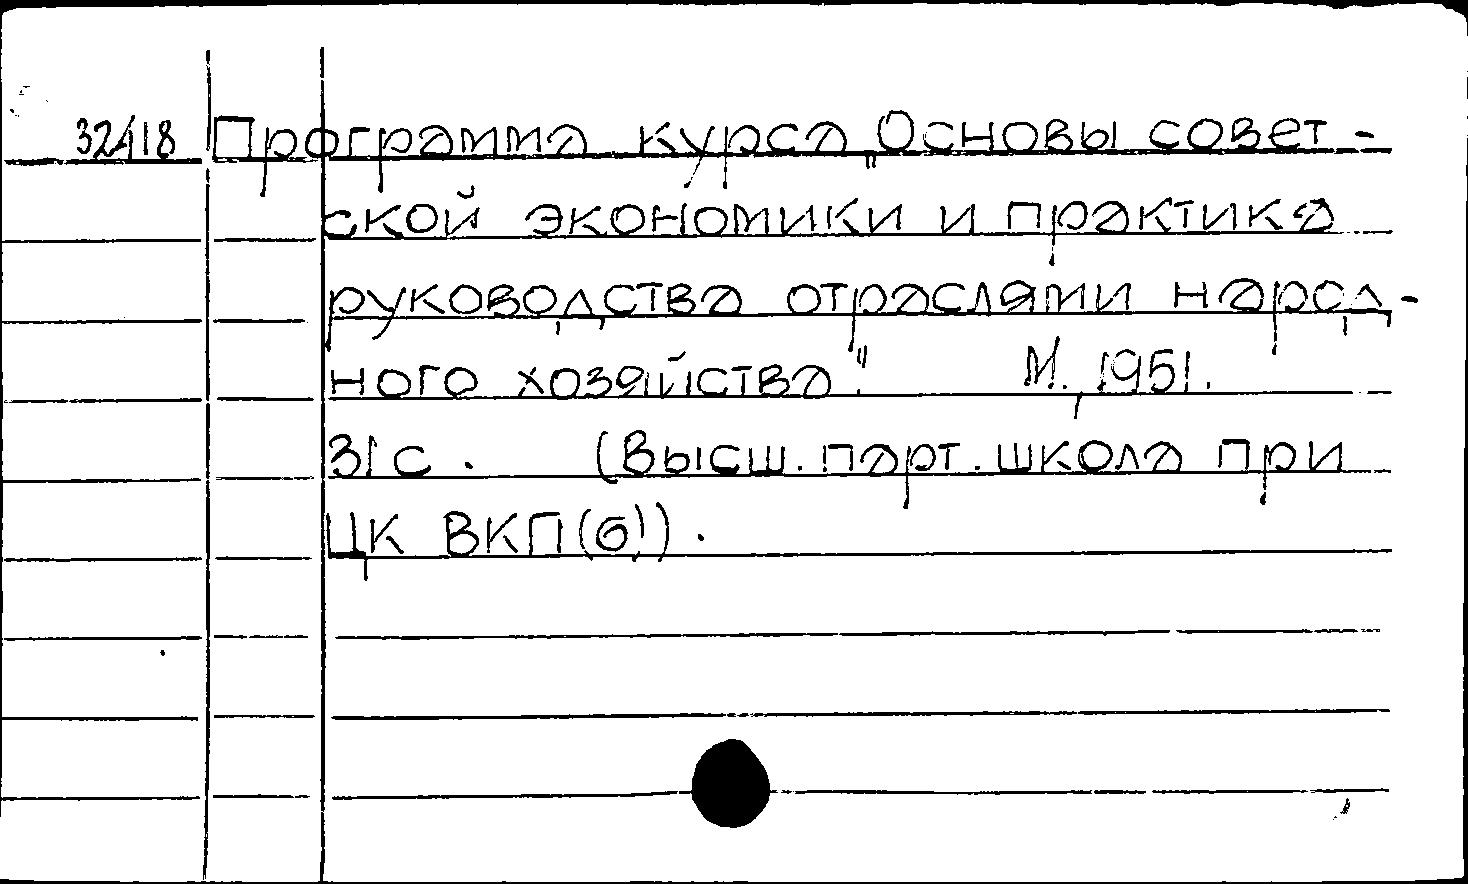 32418 Программа курса „Основы совет-
ской экономики и практика
руководства отраслями народ-
ного хозяйства". М., 1951.
31 с. (Высш. парт. школа при
ЦК ВКП(б)).